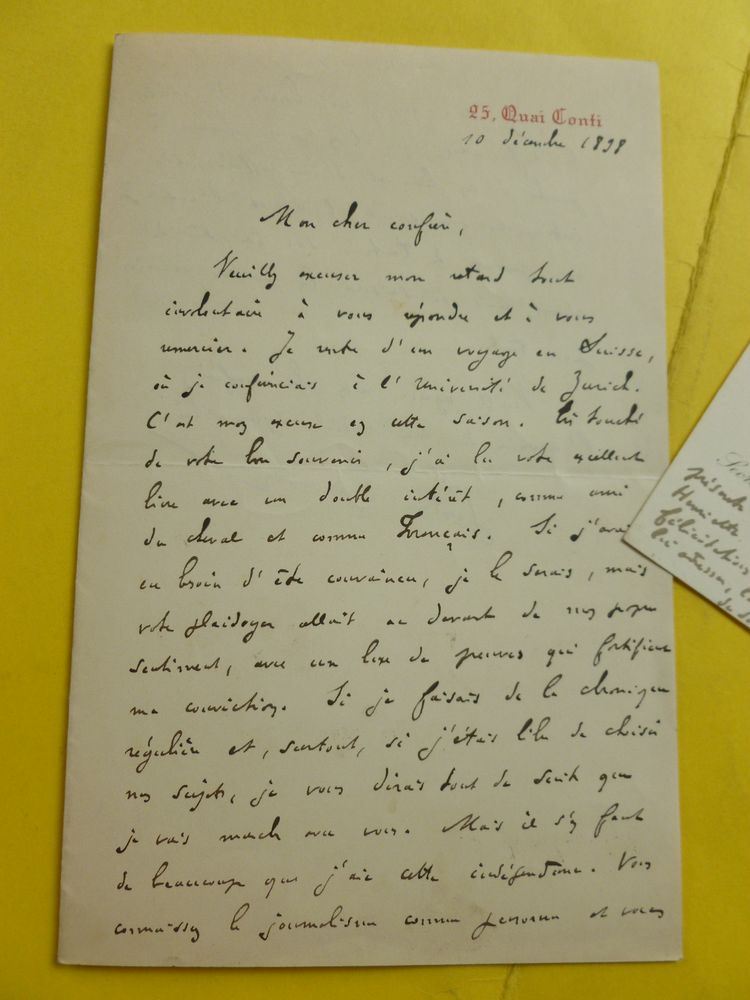 25, Quai Conti
10 décembre 1898
Mon cher confrère,
Veuillez excuser mon retard tout
involontaire à vous répondre et à vous
remercier. Je rentre d'un voyage en Suisse,
où je conférenciais à l'Université de Zurich.
C'est mon excuse en cette saison. Très touché
de votre bon souvenir, j'ai lu votre excellent
livre avec un double intérêt, comme ami
du cheval et comme Français. Si j'avais
eu besoin d'être convaincu, je le serais, mais
votre plaidoyer allait au devant de mon propre
sentiment, avec un luxe de preuves qui fortifient
ma conviction. Si je faisais de la chronique
régulière et, surtout, si j'étais libre de choisir
mes sujets, je vous dirais tout de suite que
je vais marcher avec vous. Mais il s'en faut
de beaucoup que j'aie cette indépendance. Vous
connaissez le journalisme comme personne et vous
présente
Henriette
félicitations